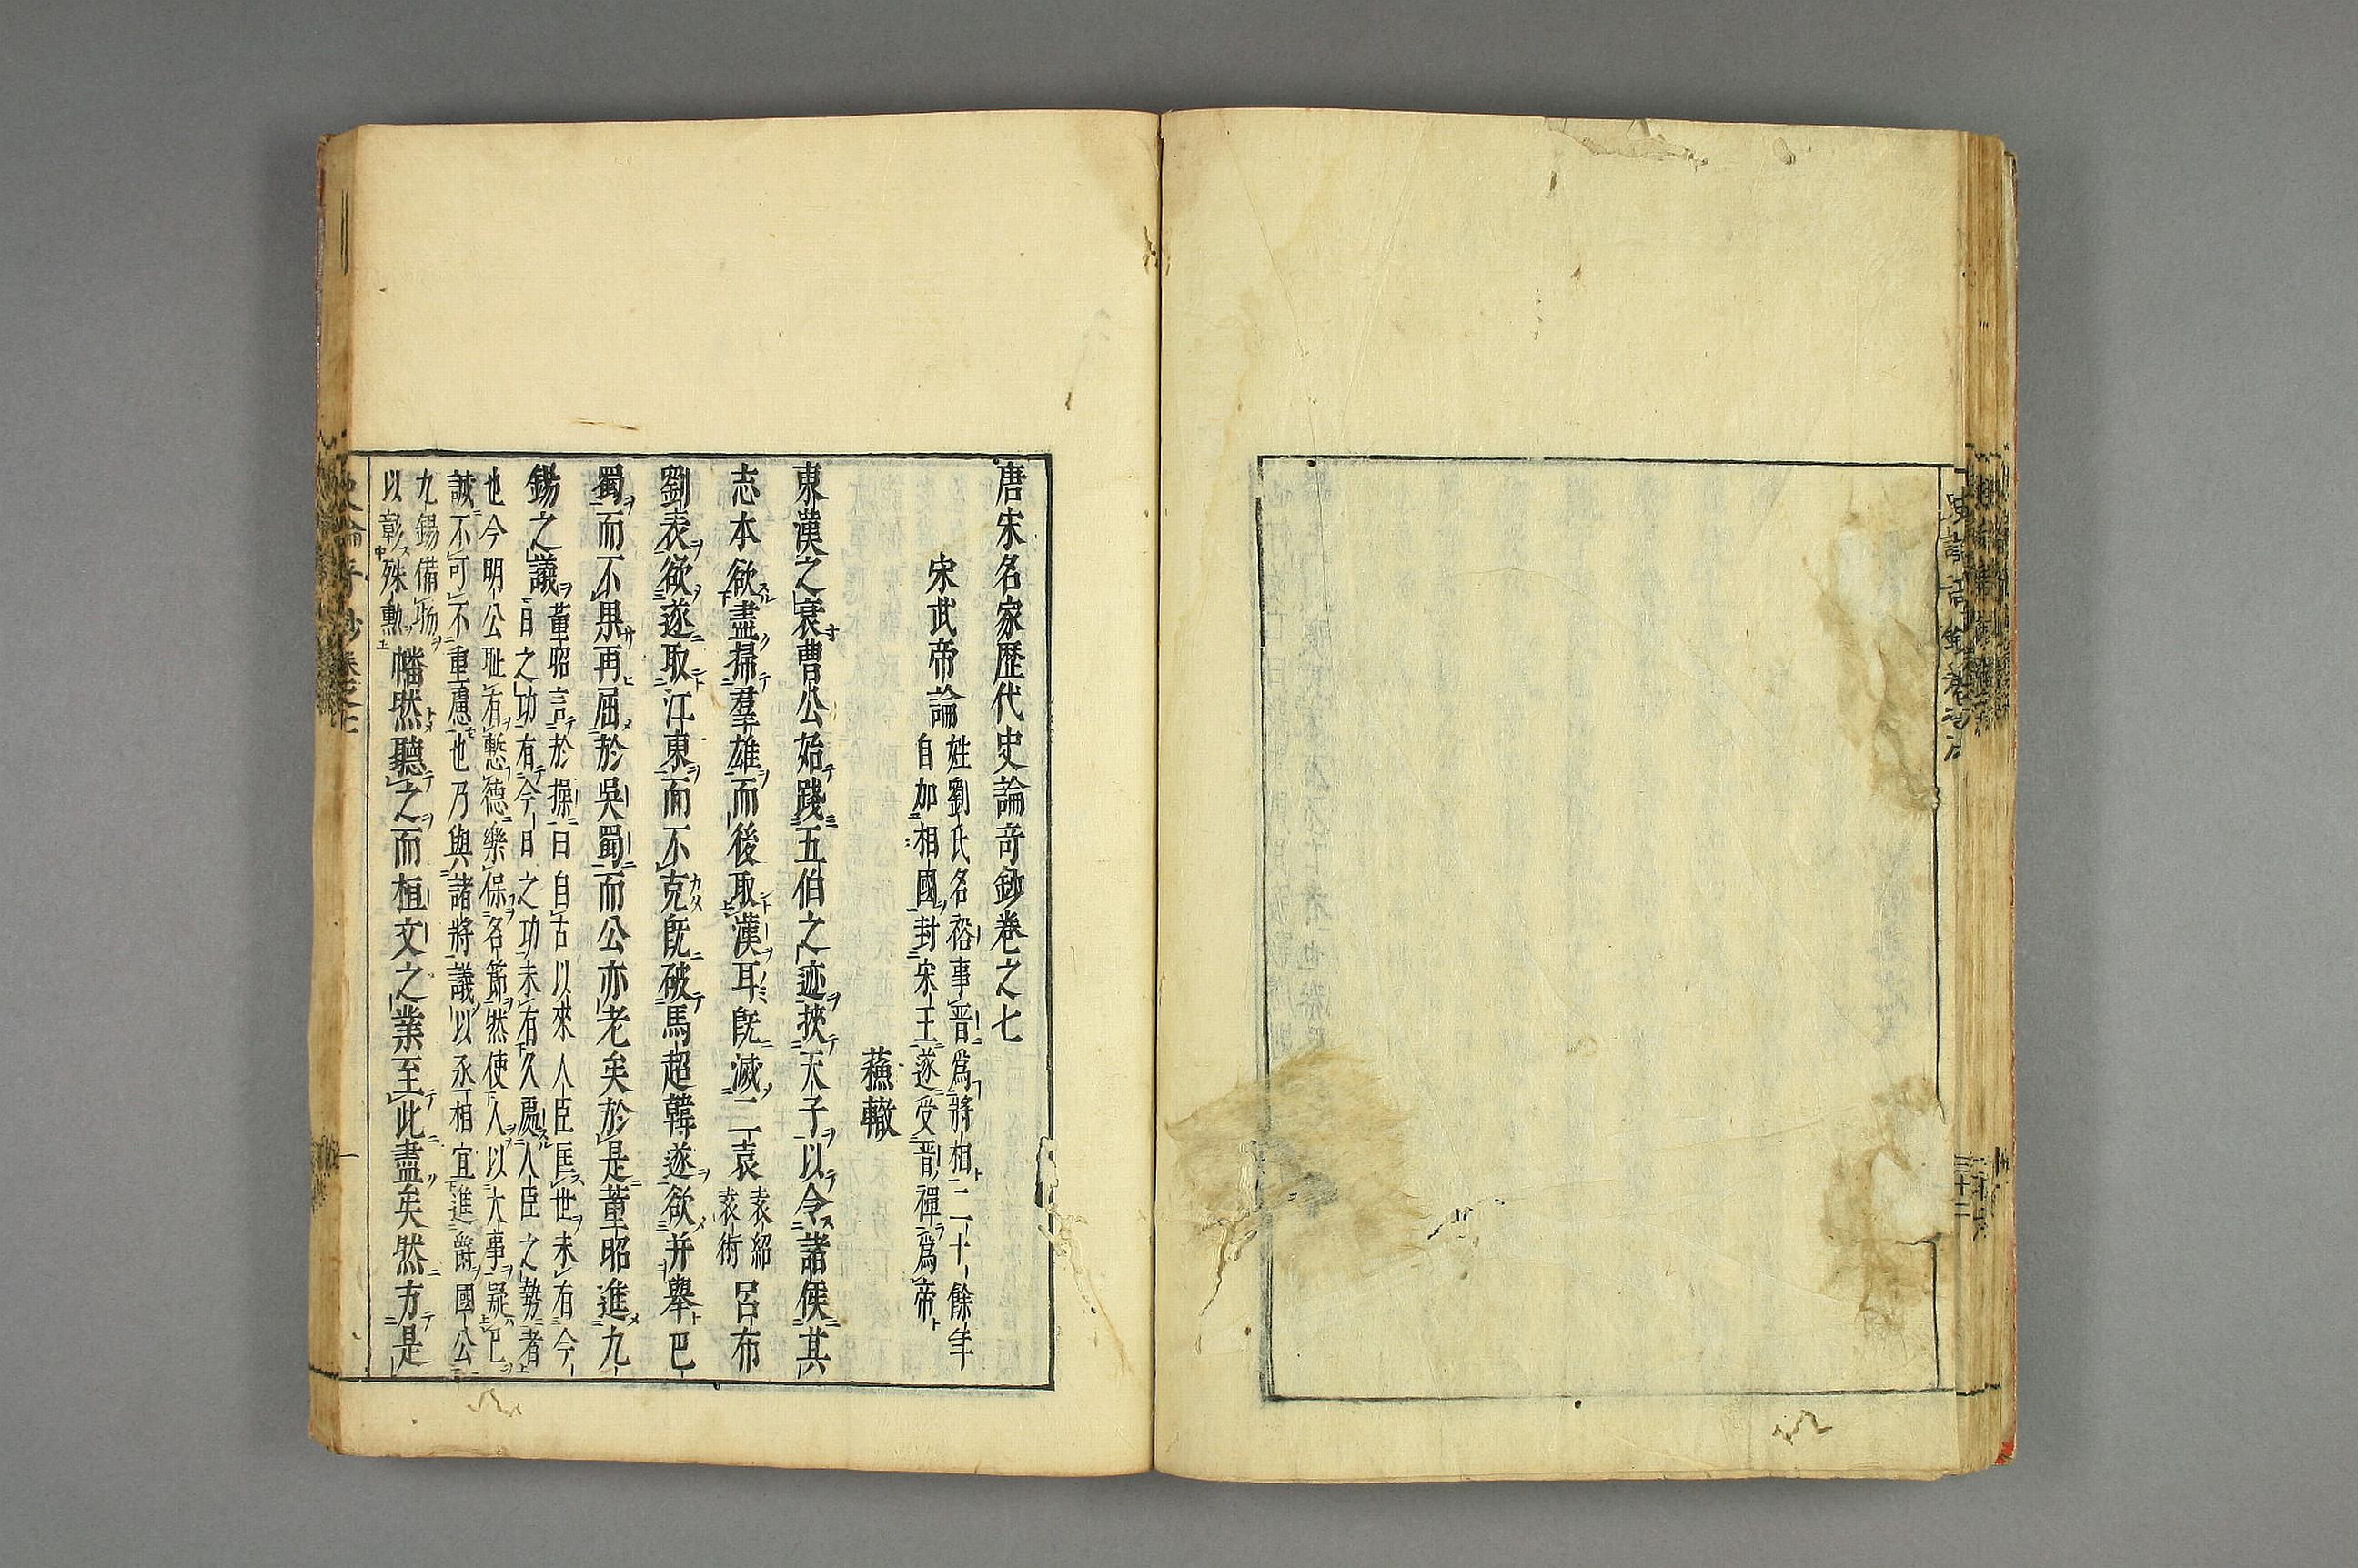 唐宋名家歷代史論奇鈔卷之七
宋武帝論
姓劉氏名裕事晋爲將相二十餘年
自加相國封宋王遂受晋禪爲帝
蘓轍
東漢之衰曹公始踐五伯之迹挾天子以令諸侯其
志本欲盡掃羣雄而後取漢耳旣滅二袁
袁紹
袁術
呂布
劉表欲遂取江東而不克旣破馬超韓遂欲并舉巴
蜀而不果再屈於吳蜀而公亦老矣於是董昭進九
錫之議
董昭言於操曰自古以來人臣匡世未有今
日之功有今日之功未有久處人臣之勢者
也今明公耻有慙德樂保名節然使人以大事疑巴
誠不可不重慮也乃與諸將議以丞相宜進爵國公
九錫備物
以彰殊勳
幡然聽之而桓文之業至此盡矣然方是